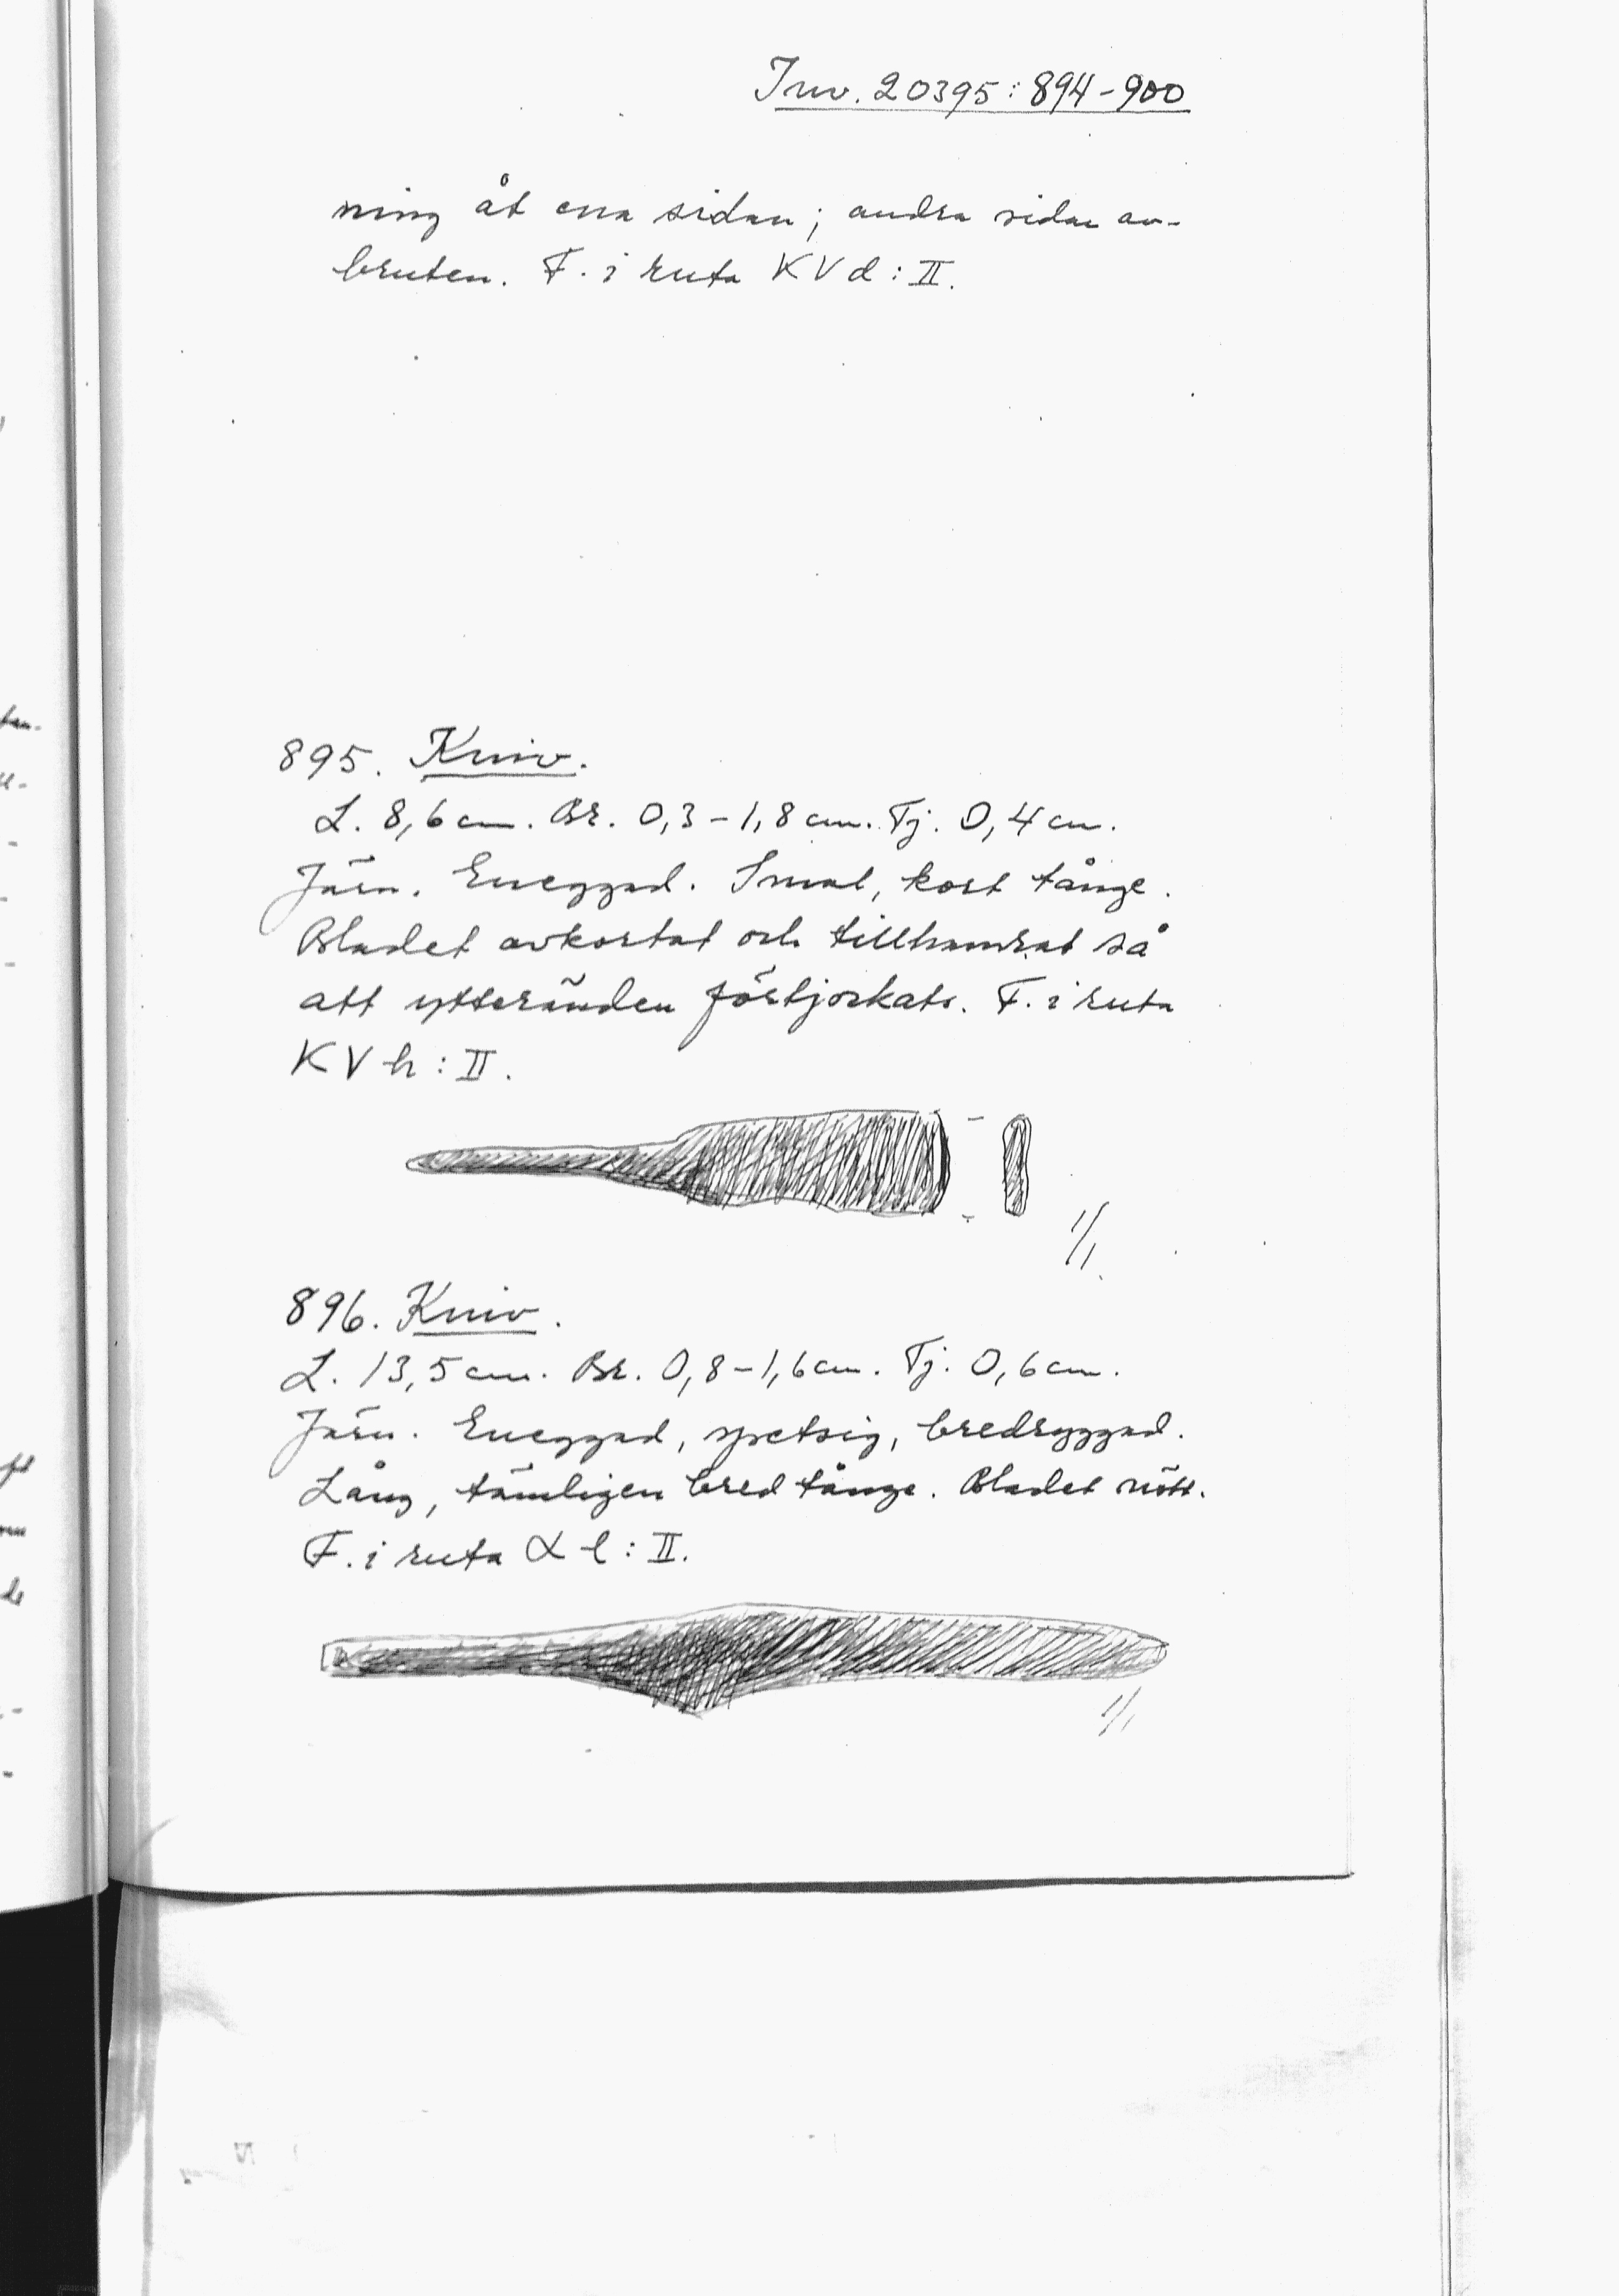 Inv. 20395:894-900
ning åt ena sidan; andra sidan av-
bruten. F. i ruta KV d:II.
895. Kniv.
L. 8,6 cm. Br. 0,3-1,8 cm. Tj. 0,4 cm.
Järn. Eneggad. Smal, kort tånge.
Bladet avkortat och tillhamrat så
att ytteränden förtjockats. F. i ruta
KV h:II.
1/1
896. Kniv.
L. 13,5 cm. Br. 0,8-1,6 cm. Tj. 0,6 cm.
Järn. Eneggad, spetsig, bredryggad.
Lång, tämligen bred tånge. Bladet nött.
F. i ruta α l:II.
1/1